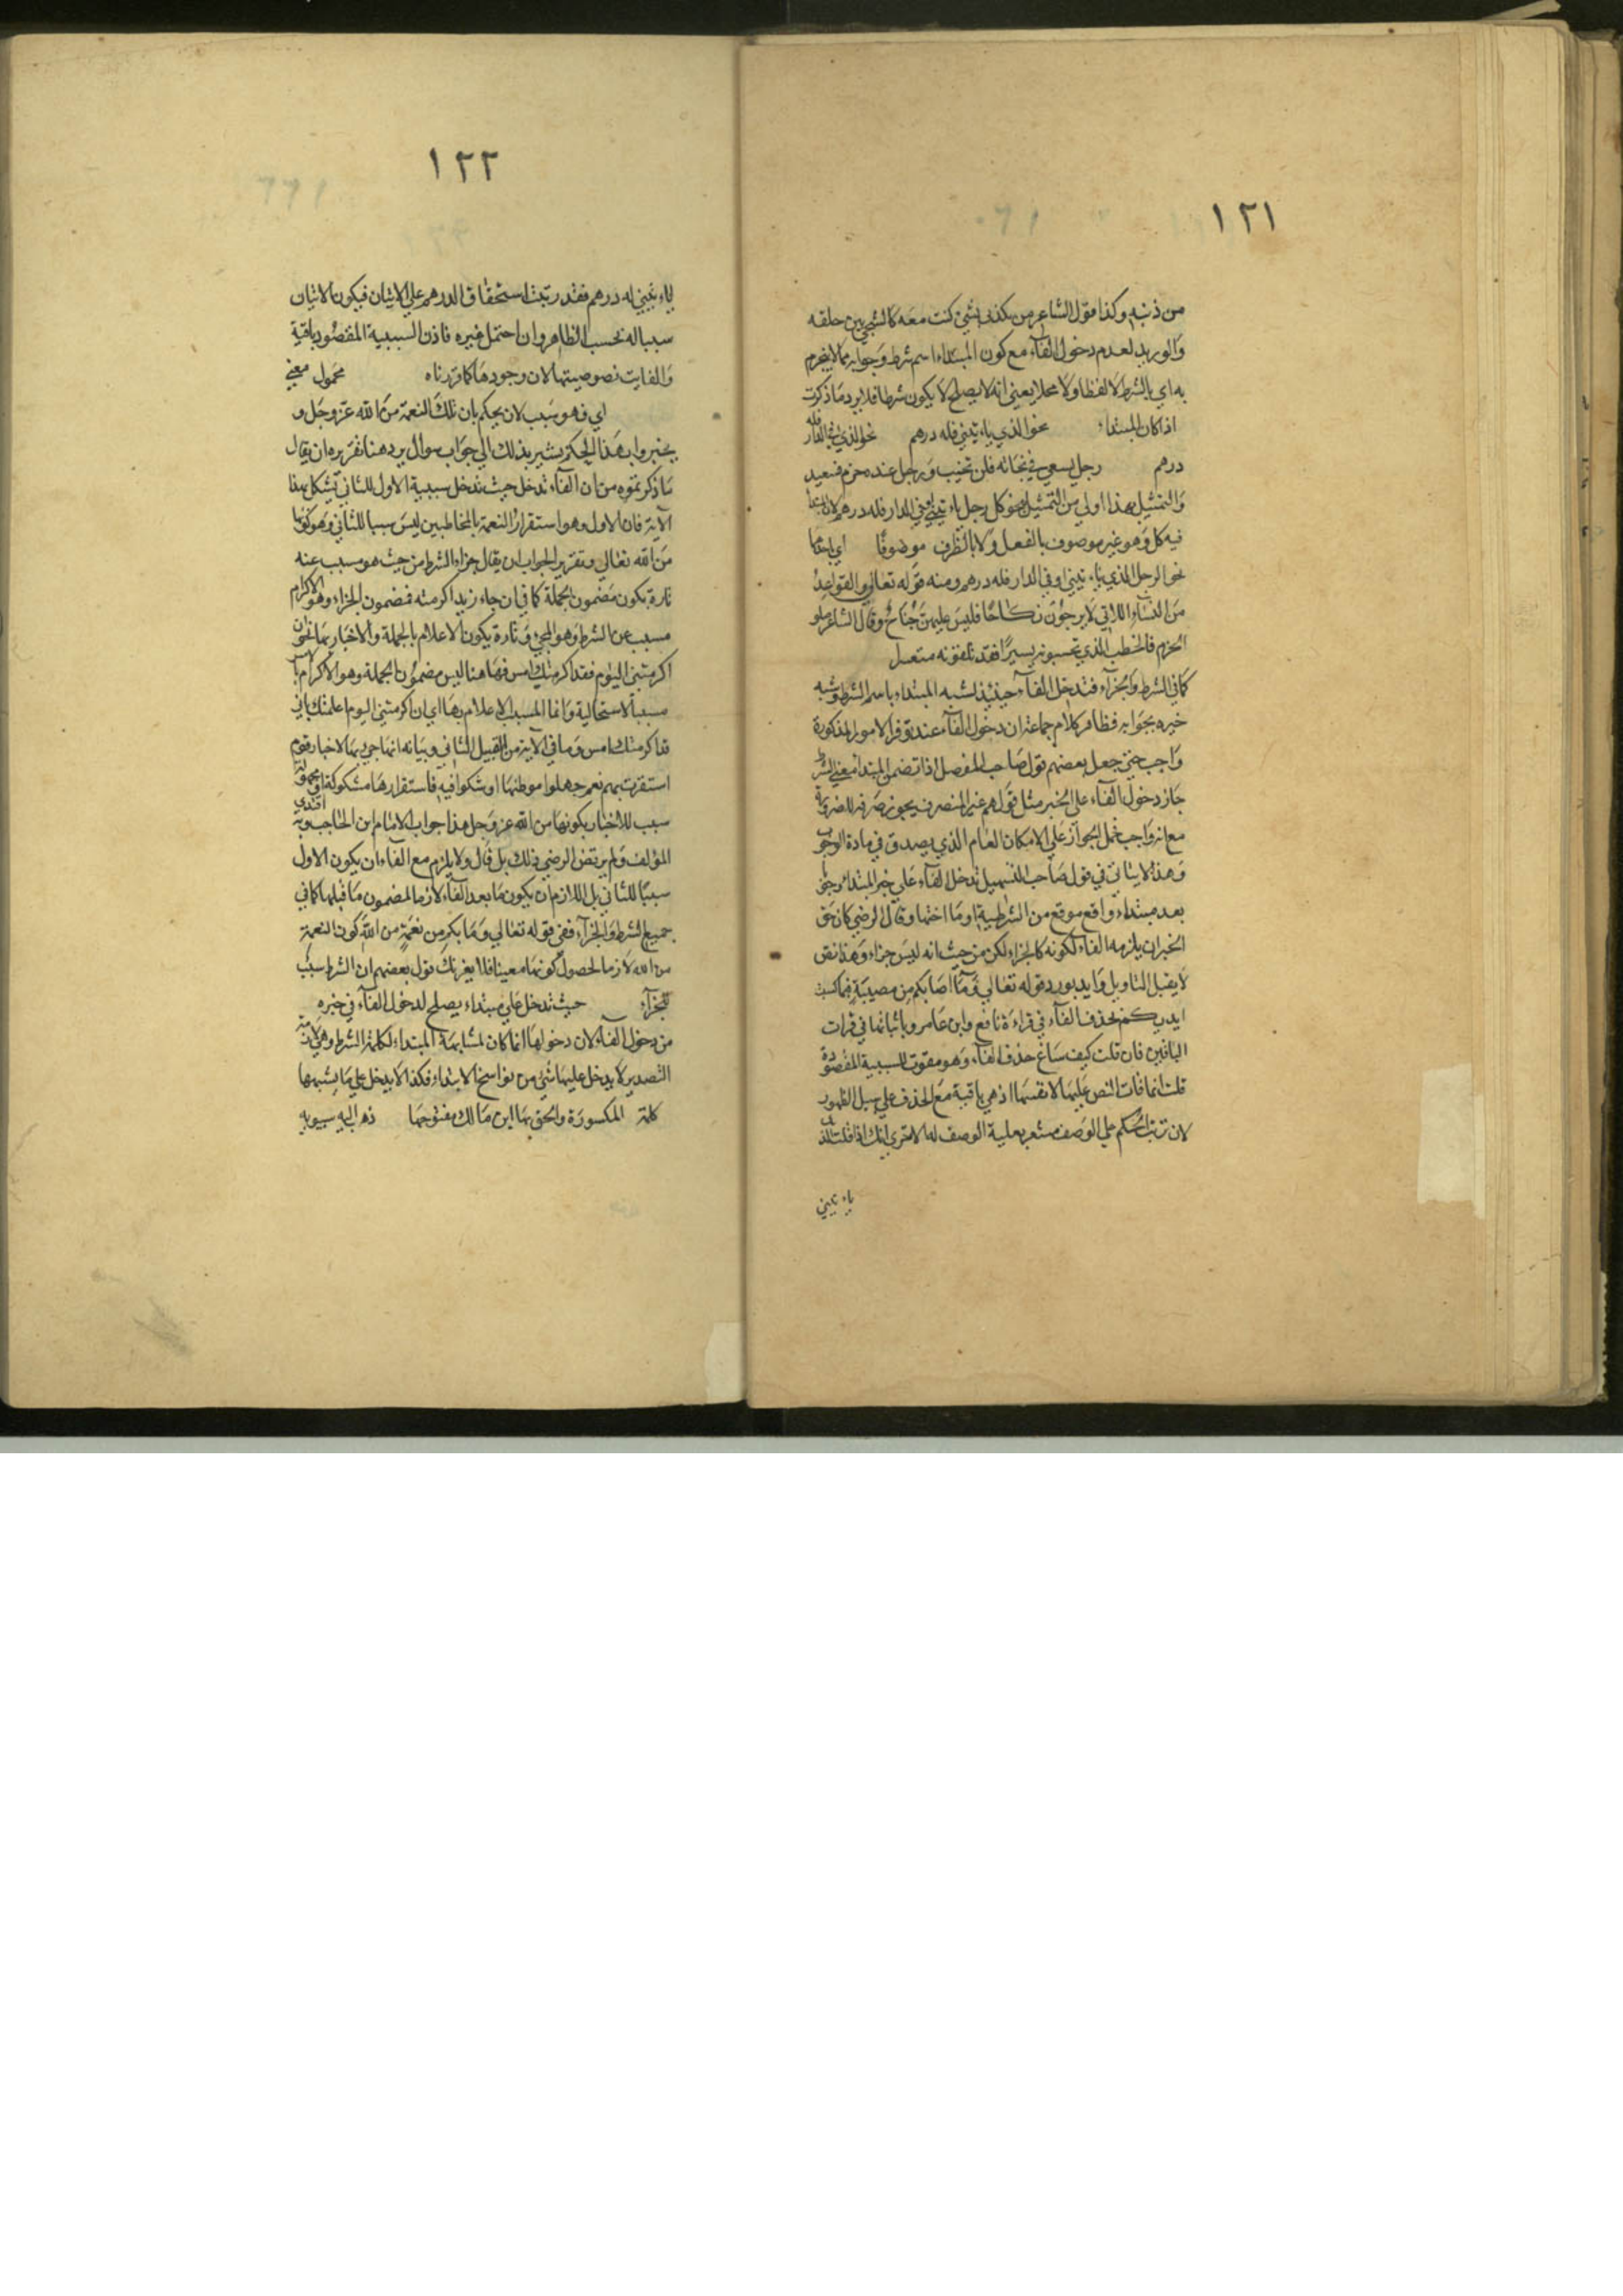 ١٢١
من ذنبه وكذا قول الشاعر من يكدني بشئ كنت معه كالشجى بين حلقه
والوريد لعدم دخول الفآء مع كون المبتداء اسم شرط وجوابه مما لا ينجزم
به اي بالشرط لا لفظا ولا محلا يعني انه لا يصلح لا يكون شرطا فلا يرد ما ذكرت
اذا كان المبتداء نحو الذي ياء تيني فله درهم نحو الذي في الدار فله
درهم رجل يسعى في نجاته فلن يخيب ورجل عنده حزم فسعيد
والتمثيل بهذا اولى من التمثيل بنحو كل رجل ياء تيني او في الدار فله درهم لان المبتدأ
فيه كل وهو غير موصوف بالفعل ولا بالظرف موصوفًا اي باحدهما
نحو الرجل الذي ياء تيني او في الدار فله درهم ومنه قوله تعالى والقواعدُ
من النسآءِ اللاتي لا يرجُوْنَ نكاحًا فليسَ عليهنّ جُنَاحٌ وقال الشاعر صلو
الحزم فالخطب الذي تحسبونه يسيرًا فقد تلفونه متعسرا
كما في الشرط والجزآء فتدخل الفآء حينئذ لشبه المبتداء باسم الشرط وشبه
خبره بجوابه فظاهر كلام جماعة ان دخول الفآء عند توفر الامور المذكورة
واجب حتى جعل بعضهم قول صاحب المفصل اذا تضمن المبتدا معنى الشرط
جاز دخول الفآء على الخبر مثل قولهم غير المنصرف يجوز صرفه للضرورة
مع انه واجب فحمل الجواز على الامكان العام الذي يصدق في مادة الوجوب
وهذا لا يتاتى في قول صاحب التسهيل تدخل الفآء على خبر المبتداء وجوبا
بعد مبتداء واقع موقع من الشرطية او ما اختها وقال الرضي كان حق
الخبر ان يلزمه الفاء لكونه كالجزاء لكن من حيث انه ليس جزاء وهذا نص
لا يقبل التاويل وايد بورود قوله تعالى وَمَآ اصَابكم مِن مصيبَةٍ فبما كسبت
ايديكم بحذف الفآء في قراءة نافع وابن عامر وباثباتها في قرات
الباقين فان قلت كيف ساغ حذف الفآء وهو مفوت للسببية المقصودة
قلت انما فات النص عليها لا نفسها اذ هي باقية مع الحذف على سبيل الظهور
لان ترتب الحكم على الوصف مشعر بعلية الوصف له الا ترى انك اذا قلت الذي
ياء تيني
١٢٢
ياء تيني له درهم فقد رتبت استحقاق الدرهم على الاتيان فيكون الاتيان
سببا له بحسب الظاهر وان احتمل غيره فاذن السببية المقصود باقية
والفايت نصوصيتها لان وجودها كما قررناه محمول معنى
اي فهو سَبب لان يحكم بان تلك النعمة من الله عزّ وجَل و
يخبر وا بهذا الحكم يشير بذلك الي جواب سوال يرد هنا تقريره ان يقال
ما ذكر تموه من ان الفآء تدخل حيث تدخل سببية الاول للثاني تشكل بهذا
الآية فان الاول وهو استقرارُ النعمة بالمخاطبين ليسَ سببا للثاني وهو كونها
من الله تعالي وتقرير الجواب ان يقال جزاء الشرط من حيث هو مسبب عنه
تارة يكون مضمون الجملة كما في ان جاء زيد اكرمته فمضمون الجزاء وهو الاكرام
مسبب عن الشرط وهو المجيء وتارة يكون الاعلام بالجملة والاخبار بها نحو ان
اكرمتني اليوم فقد اكرمتك امس فهاهنا ليس مضمون الجملة وهو الاكرام بالامس
مسببا لاستحالية وانما المسبب الاعلام بها اي ان اكرمتني اليوم اعلمتك باني
قد اكرمتك امس وما في الآية من القبيل الثاني وبيانه انها جيء بها لاخبار قوم
استقرت بهم نعم جهلوا موطنها او شكوا فيه فاستقرارها مشكوكة او مجهولة
سبب للاخبار بكونها من الله عز وجل هذا جواب الامام ابن الحاجب وبه اقتدى
المؤلف ولم يرتض الرضي ذلك بل قال ولا يلزم مع الفآء ان يكون الاول
سببًا للثاني بل اللازم ان يكون ما بعد الفآء لازما لمضمون ما قبلها كما في
جميع الشرط والجزآء ففي قوله تعالي وَمَا بكم من نعمَةٍ من اللهِ كون النعمة
من الله لازما لحصول كونها معينا فلا يغرنك قول بعضهم ان الشرط سبب
للجزآء حيث تدخل على مبتداء يصلح لدخول الفآء في خبره
من دخول الفآء لان دخولها انما كان لمشابهة المبتداء لكلمة الشرط وهي لازمة
التصدير لا يدخل عليها شئ من نواسخ الابتداء فكذا لا يدخل على ما يشبهها
كلمة المكسورة والحق بها ابن مالك مفتوحها ذهب اليه سيبويه